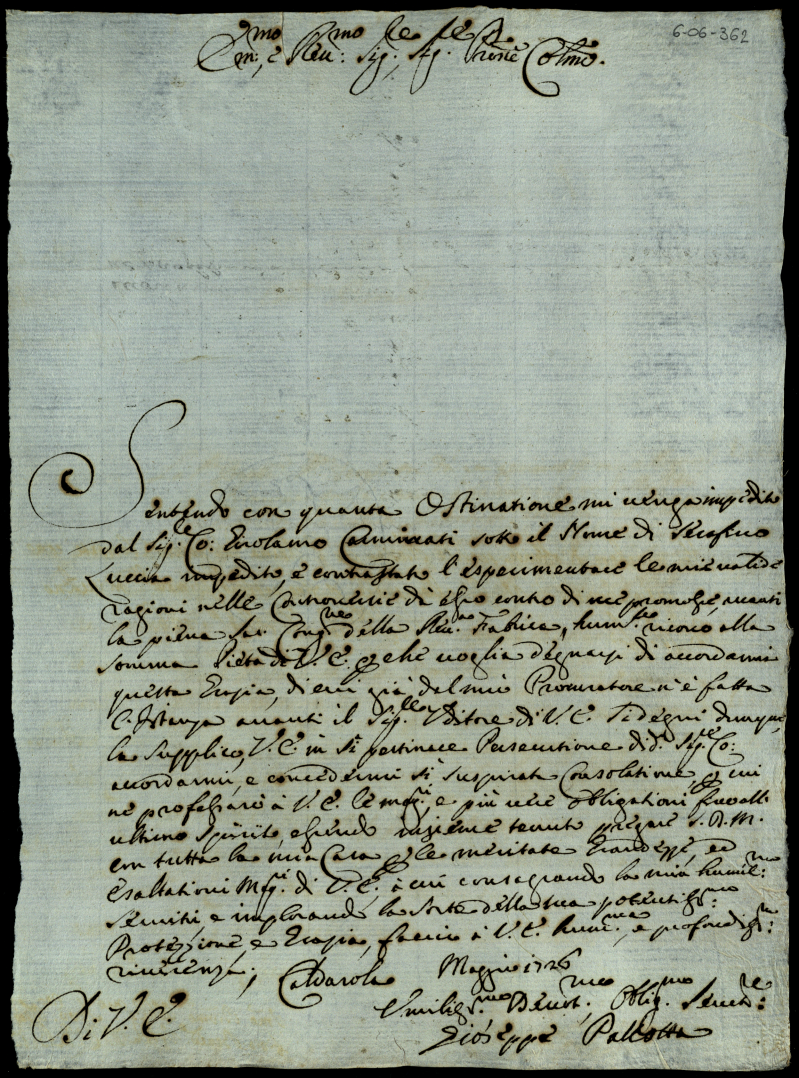 6-06-362
Em:mo, e Reu:mo Sig:re, Sig:re Prone Colmo.
Sentendo con quanta Ostinatione mi uenga impedito
dal Sig.e Co: Girolamo sotto il Nome di Serafino
Luccia impedito, e contrastato l'esperimentare le mie ualide
ragioni nelle Controuersie dà esso contro di me promosse auanti
la piena Sac. Congne della Reu.a Fabrica, humte ricorro alla
somma Pietà di V.E. che uoglia degnarsi di accordarmi
questa Grazia, di cui già dal mio Procuratore n'è fatta
l'Istanza auanti il Sig.re Uditore di V.E. Si degni dunque,
la Supplico, V.E. in sì pertinace Persecutione di d.o Sig.e Co:
accordarmi, e concedermi sì suspirata Consolatione, cui
ne professarò à V.E. le magri, e più uiue obligationi fino all'
ultimo Spirito, essendo insieme tenuto pregare S.D.M.
con tutta la mia Casa le meritate Grandezze, ed
Esaltationi Magri di V.E. à cui consagrando la mia humil:ma
seruitù, e implorando la sorte della sua potentiss:ma
Protezzione, e Grazia, faccio à V.E. hum:ma, e profondiss:ma
riuerenza, Caldarola Maggio 1726
Di V.E.
Umiliss:mo Deuot.mo Oblig.mo Seruid:re
Gioseppe Pallotta